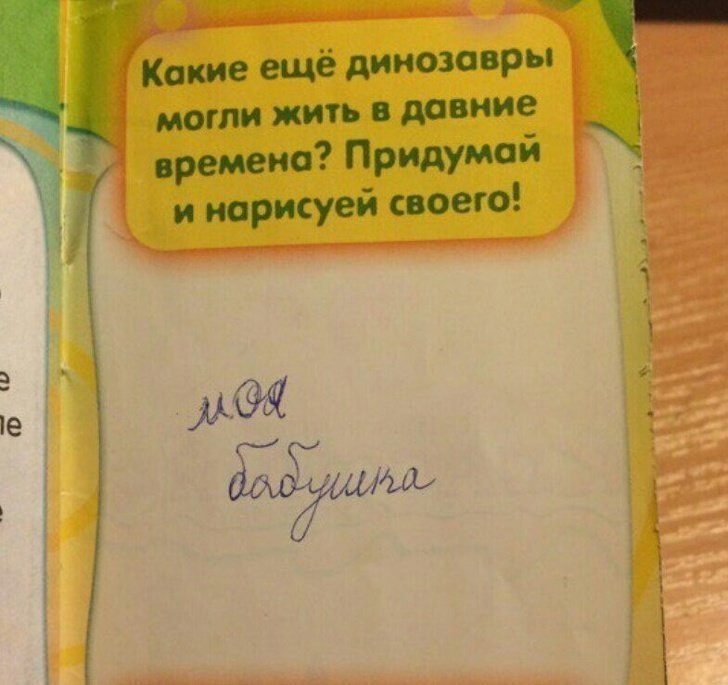 Какие ещё динозавры
могли жить в давние
времена? Придумай
и нарисуей своего!
моя
бабушка
е